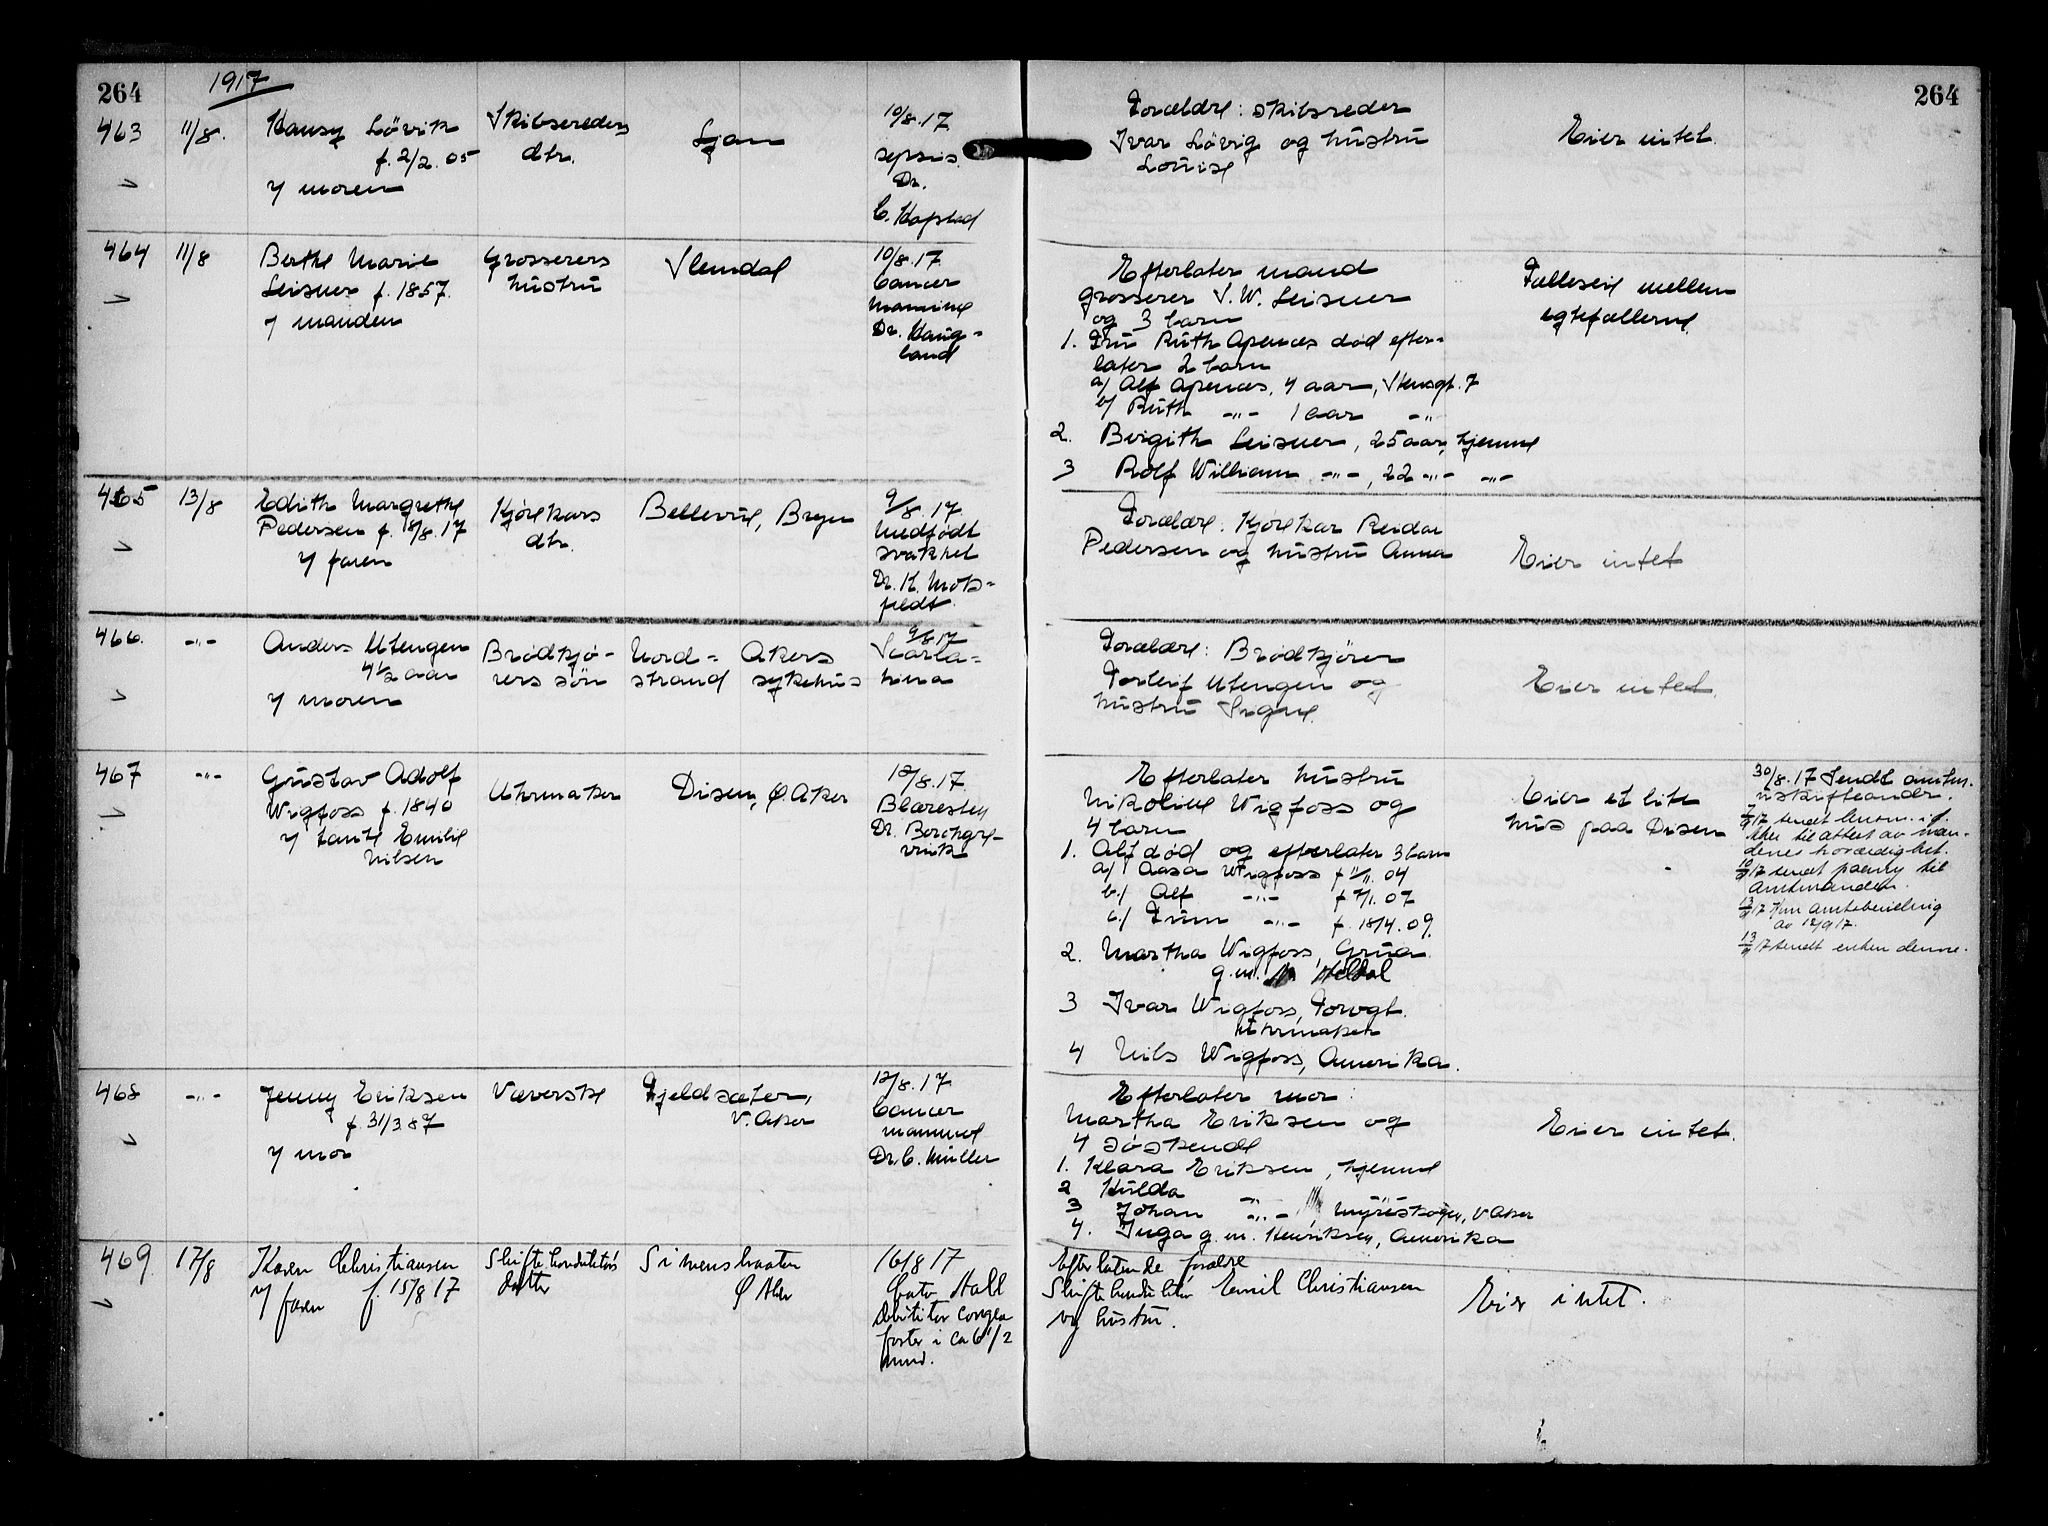 264
1917
264
463
11/8.
Hansy Lövik
f. 2/2. 05
v/ moren
Skibsreders
dtr.
Ljan
10/8. 17.
sepsis.
Dr.
C. Kapstad
Forældre: skibsreder
Ivar Lövig og hustru
Louise
Eier intet.
464
11/8
Berthe Marie
Leisner f. 1857.
v/ manden
Grosserers
hustru
Slemdal
10/8. 17.
Cancer
mammae
Dr. Haug-
land
Efterlater mand
grosserer S. W. Leisner
og 3 barn
1. Fru Ruth Apenæs død efter-
later 2 barn
a/ Alf Apenæs, 4 aar, Stensgt. 7
b/ Ruth -"- 1 aar -"-
2. Birgith Leisner, 25 aar, hjemme
3 Rolf William -"-, 22 -"- -"-
Fælleseie mellem
egtefællerne.
465
13/8
Edith Margrethe
Pedersen f. 8/8. 17
v/ faren
Kjørekars
dtr.
Bellevue, Bryn
9/8. 17.
Medfødt
svakhet
Dr. K. Mots-
feldt.
Forældre: Kjørekar Reidar
Pedersen og hustru Anna
Eier intet
466.
-"-
Anders Utengen
4 1/2 aar
v/ moren
Brødkjø-
rers søn
Nord-
strand
Akers
sykehus
9/8 17
Scarla-
tina
Forældre: Brødkjører
Torleif Utengen og
hustru Signe.
Eier intet.
467
-"-
Gustav Adolf
Wigfoss f. 1840
v/ tante Emilie
Nilsen
Uhrmaker
Disen, Ø. Aker
12/8. 17
Blæresten
Dr. Borchgre-
vink
Efterlater hustru
Nikoline Wigfoss og
4 barn
1. Alf død og efterlater 3 barn
a/ Aasa Wigfoss f 11/11. 04
b/ Alf -"- f 7/1. 07
c/ Finn -"- f. 18/4. 09.
2. Martha Wigfoss, Grua
g.m. Heldal
3 Ivar Wigfoss, Torvgt.
Uhrmaker
4 Nils Wigfoss, Amerika.
Eier et lite
hus paa Disen
30/8. 17 Sendt
uskifteandr.
til attest av man-
denes
17 sendt paany til
amtmanden.
13/9 17 Kom amtsbevilling
av 12/9 17.
13/9 17 sendt enken denne.
468
-"-
Jenny Eriksen
f. 31/3 87
v/ mor
Væverske
Fjeldsæter,
V. Aker
12/8. 17
Cancer
mammae
Dr. C. Müller
Efterlater mor:
Martha Eriksen og
4 søskende
1. Klara Eriksen, hjemme
2 Hulda -"- -"-
3 Johan -"- , V Aker
4. Inga g.m. Henriksen, Amerika
Eier intet.
469
17/8
Karen Christiansen
v/ faren f. 15/8 17
datter
Simensbraaten
Ø Aker
16/8 17
Cato Aall
foster i ca 6 1/2
mnd.
Efterlatende foreldre
Emil Christiansen
og hustru.
Eier intet.